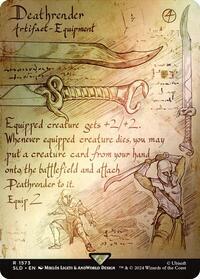 Deathrender
4
Artifact – Equipment
Equipped creature gets +2/+2.
Whenever equipped creature dies, you may
put a creature card from your hand
onto the battlefield and attach
Deathrender to it.
Equip 2
R 1573
SLD • EN MIKLÓS LIGETI & ANDWORLD DESIGN
© Ubisoft
™ & © 2024 Wizards of the Coast